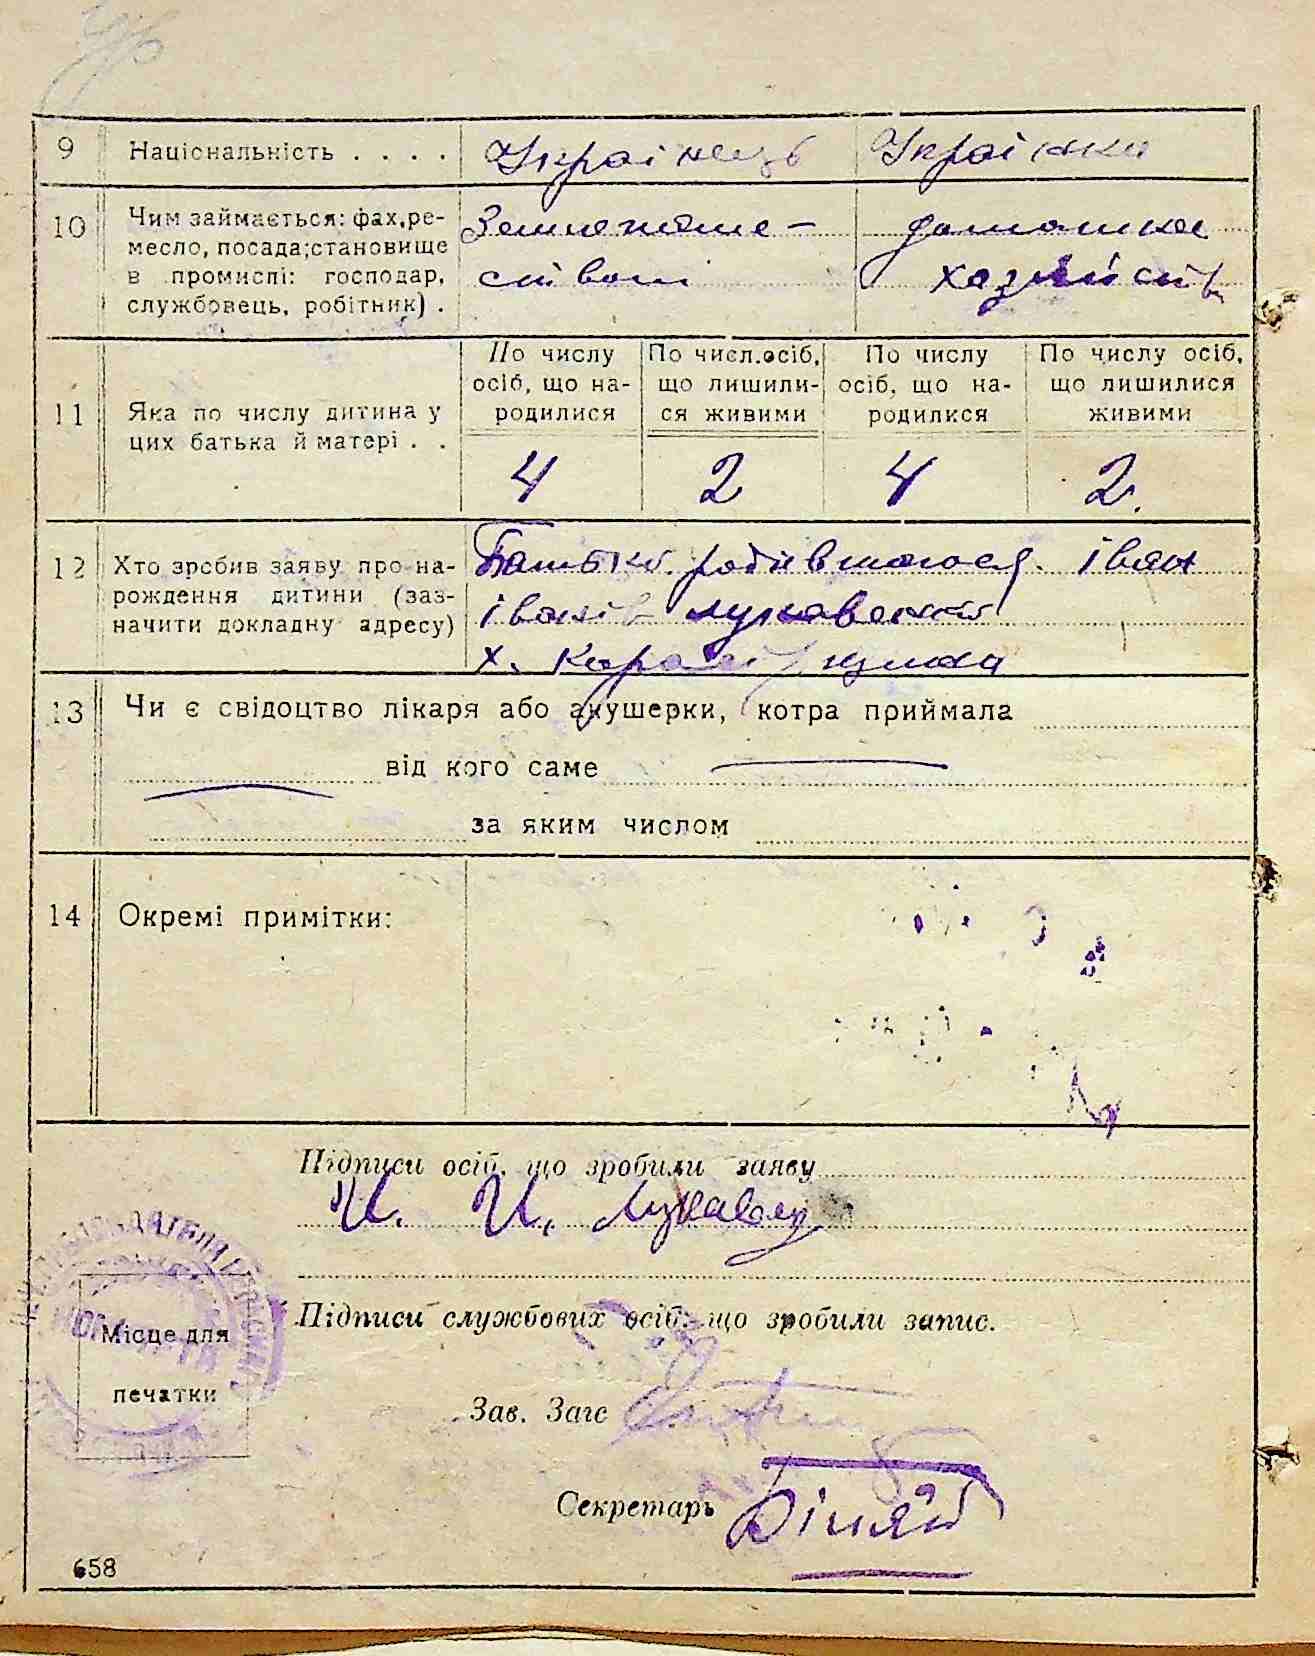 9 Національність . . . . Українець Українка
10 Чим займається: фах, ре-
месло, посада; становище
в промислі: господар,
службовець, робітник) .
Земленаше-
ством
домашнє
хазяйств
11 Яка по числу дитина у
цих батька й матері . .
По числу
осіб, що на-
родилися
По числ. осіб,
що лишили-
ся живими
По числу
осіб, що на-
родилися
По числу осіб,
що лишилися
живими
4 2 4 2.
12 Хто зробив заяву про на-
рождення дитини (заз-
начити докладну адресу)
Батько родившогося. Іван
Іванів
х.
13 Чи є свідоцтво лікаря або акушерки, котра приймала
від кого саме
за яким числом
14 Окремі примітки:
Підписи осіб, що зробили заяву
И. И.
Підписи службових осіб, що зробили запис.
Місце для
печатки
Зав. Загс
Секретарь
658